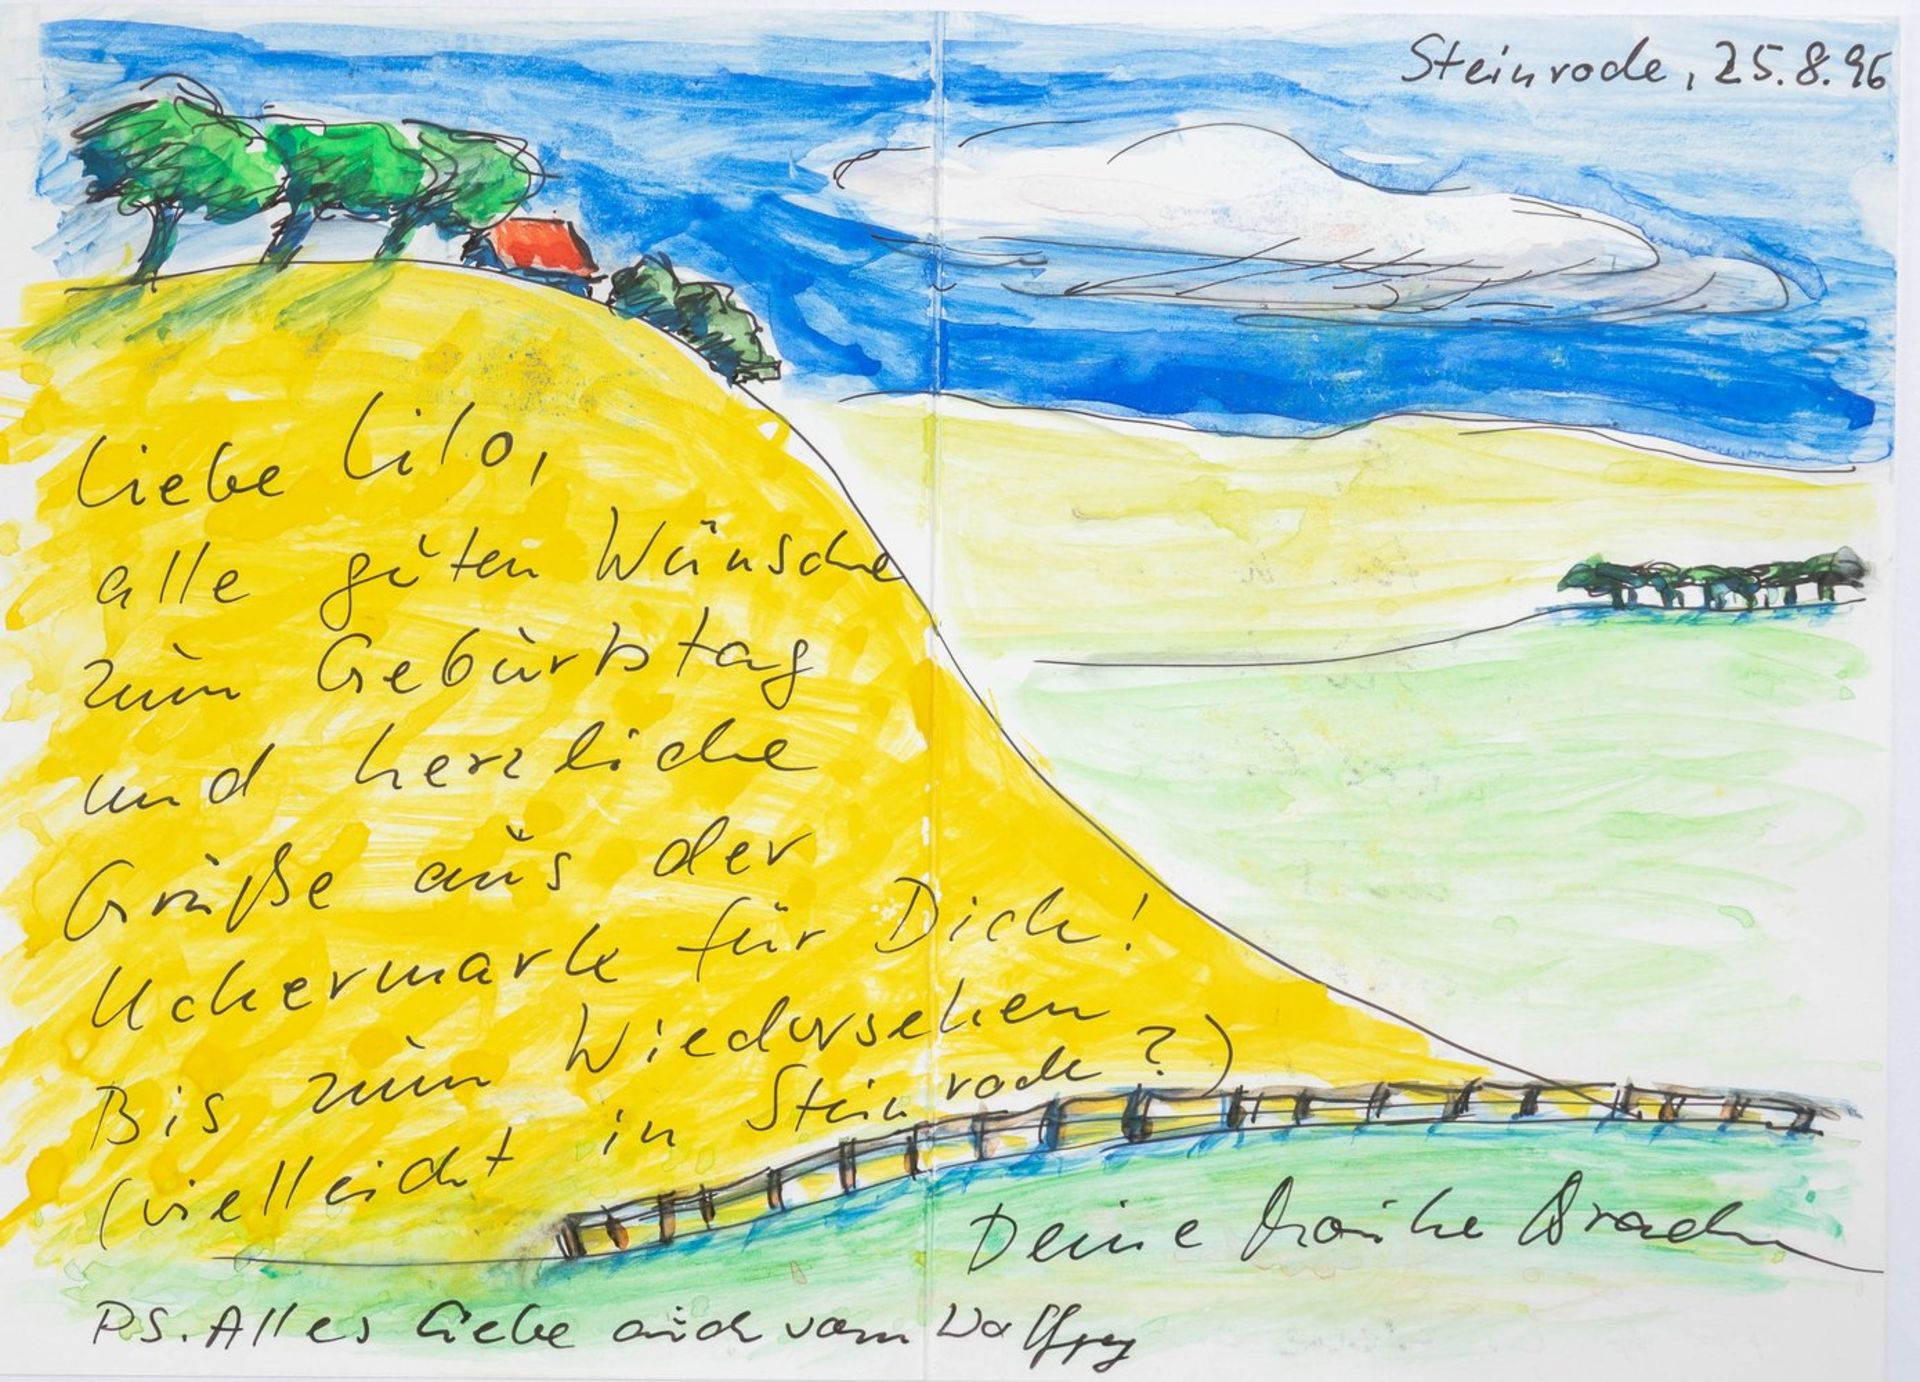 Steinrode, 25.8.96
Liebe Lilo,
alle guten Wünsche
zum Geburtstag
und herzliche
Grüße aus der
Uckermark für Dich!
Bis zum Wiedersehen
(vielleicht in Steinrode?)
Deine
P.S. Alles Liebe auch vom